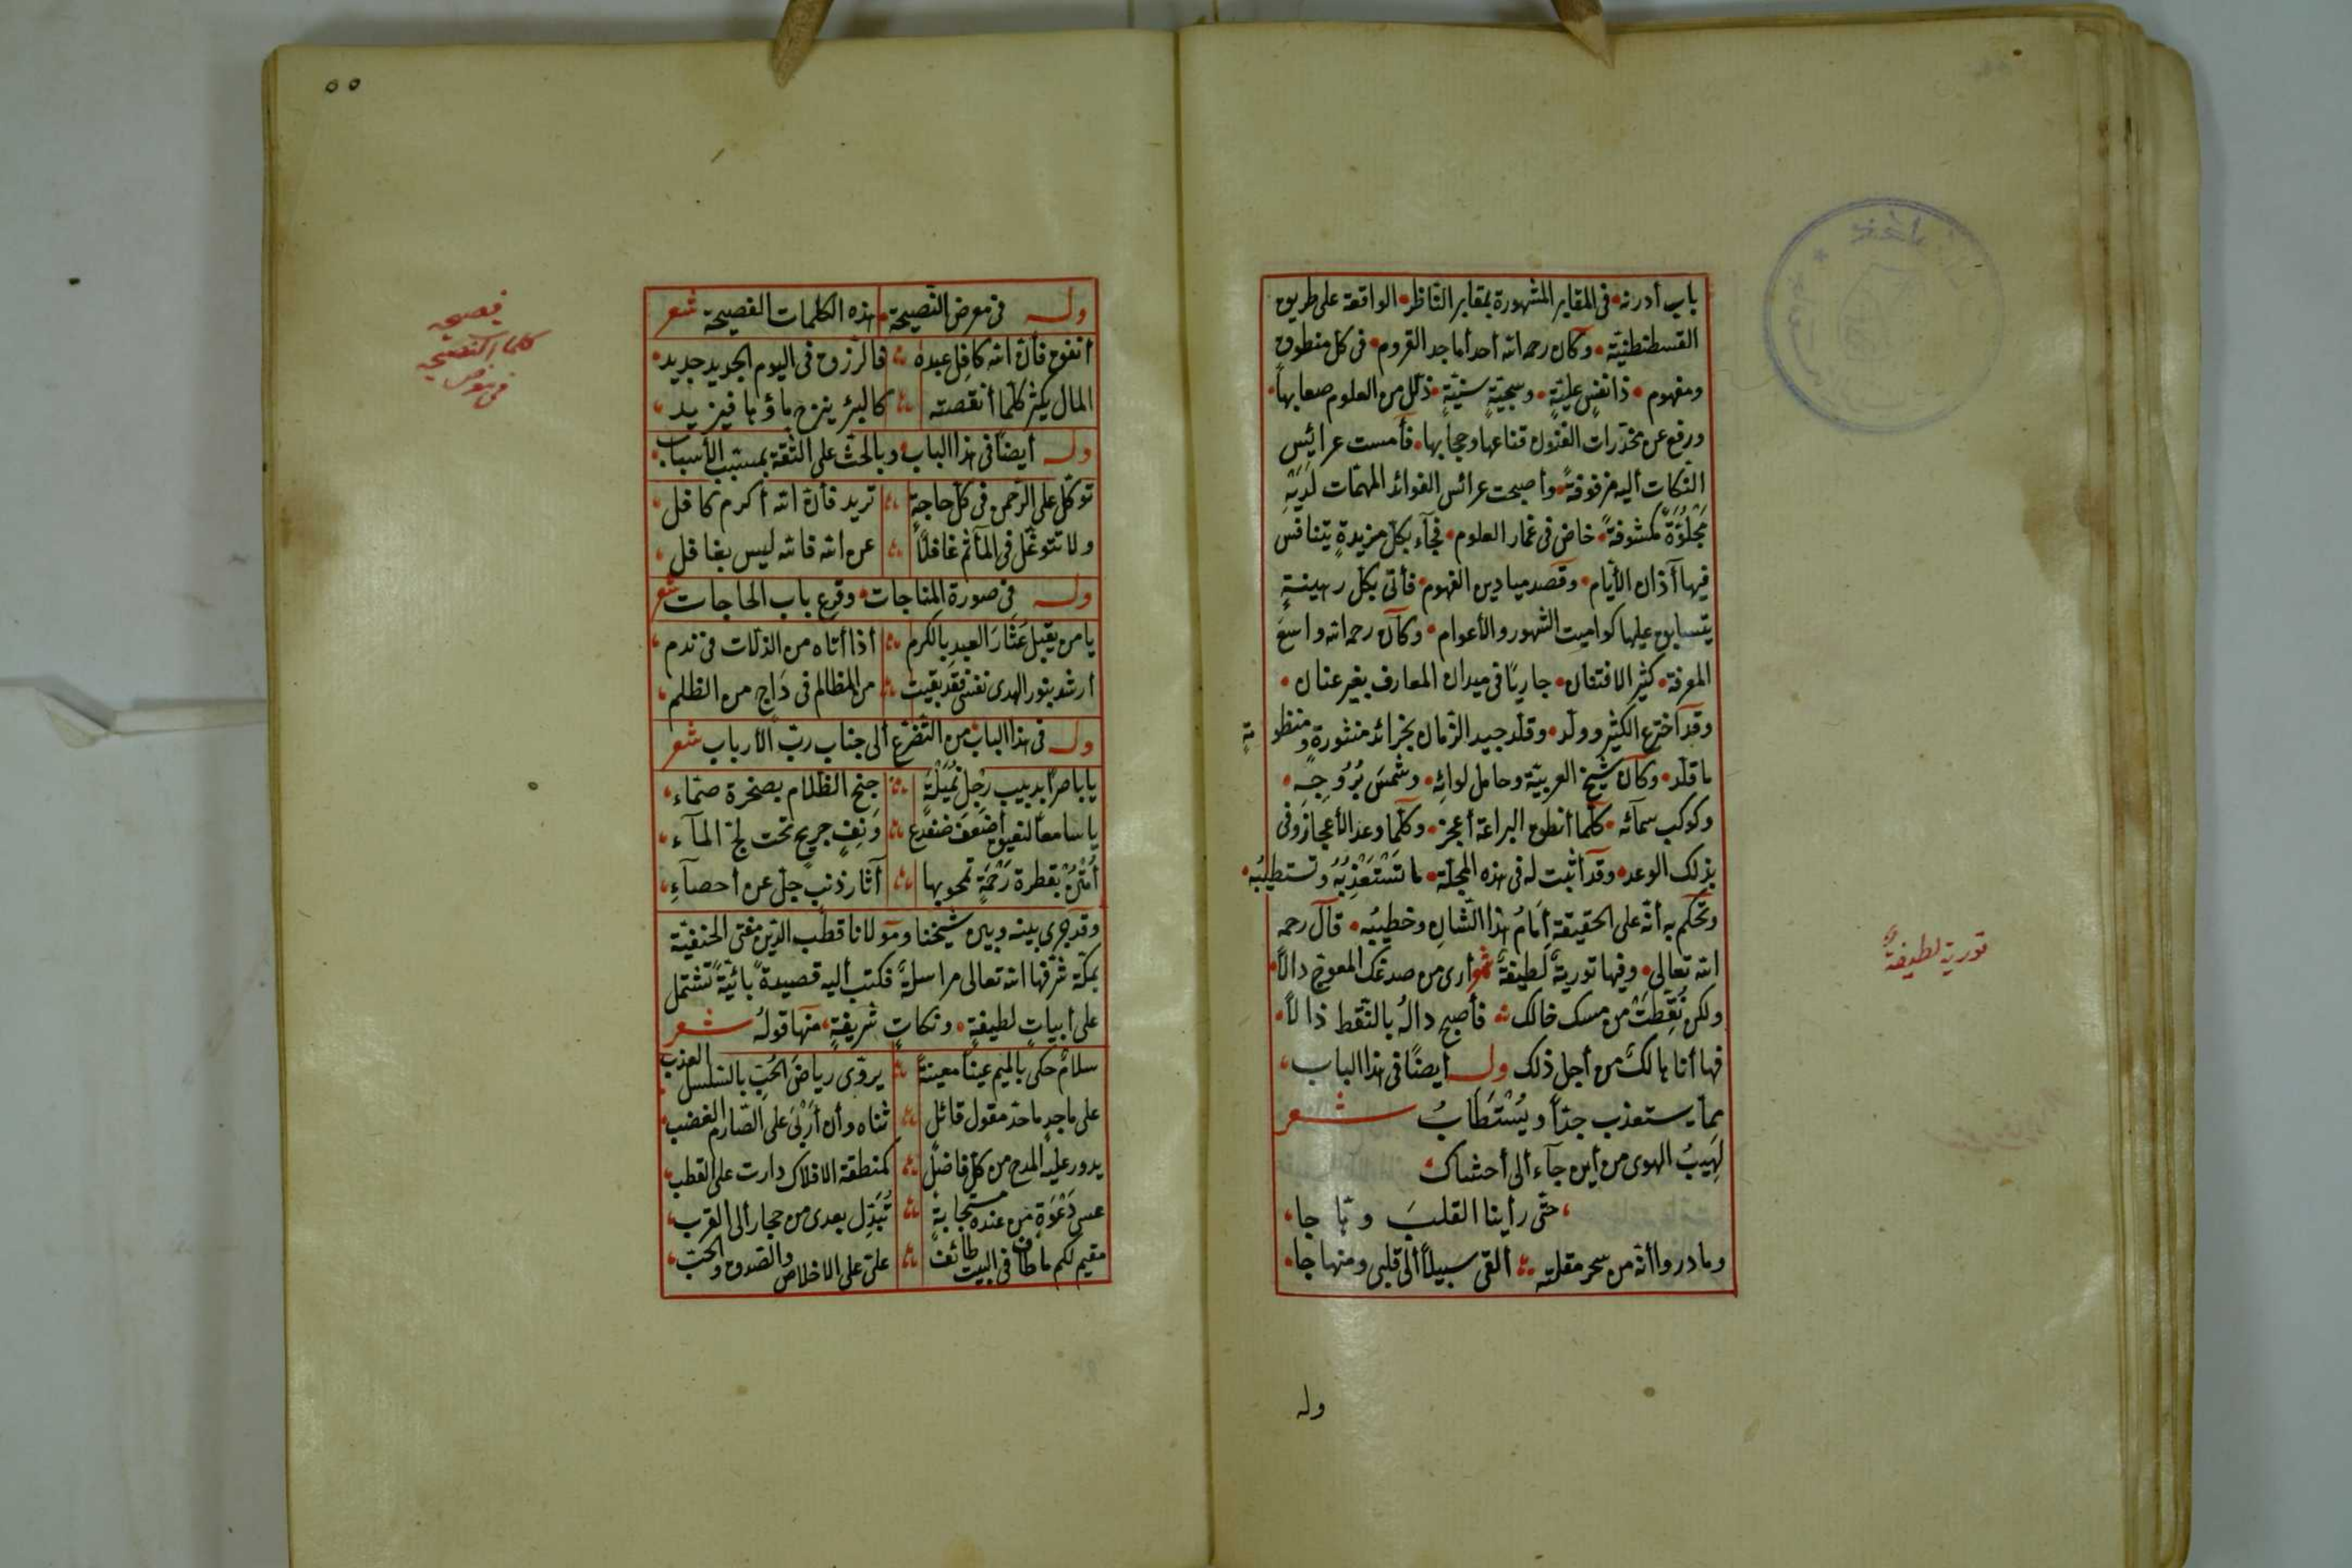 باب أدرنه • فى المقابر المشهورة بمقابر النّاظر • الواقعة على طريق
القسطنطنيّة • وكان رحمه الله أحد أماجد القروم • فى كل منطوق
ومفهوم • ذا نفسٍ عليّةٍ • وسجيّةٍ سنيّةٍ • ذلّل من العلوم صعابها •
ورفع عن مخدّرات الفنون قناعها وحجابها • فأمست عرائس
النّكات أليه مزفوفةً • وأصبحت عرائس الفوائد المهمّات لَدَيْهِ
مَجْلُوَّةً مكشوفةً • خاض فى غمار العلوم • فجآء بكلّ مزيدةٍ يتنافس
فيها آذان الأيّام • وقصد ميادين الفهوم • فأتى بكل رهينةٍ
يتسابق عليها كواميت الشهور والأعوام • وكان رحمه الله واسع
المعرفة • كثير الافتنان • جاريًا فى ميدان المعارف بغير عنان •
وقد آخترع الكثير وولّد • وقلّد جيد الزّمان بخرائد منثورة ومنظومةٍ
ما قلّد • وكان شيخ العربيّة وحامل لوائه • وشمسَ بُرُوجِهِ •
وكوكب سمآئه • كلّما أنطق البراعة أعجز • وكلّما وعد الأعجاز وفى
بذلك الوعد • وقد أثبت له فى هذه المجلّة • ما تَسْتَعْذِبُهُ وتستطيبُه •
وتحكم به أنّه على الحقيقة أمامُ هذا الشّان وخطيبُه • قال رحمه
الله تعالى • وفيها توريةٌ لطيفةٌ شعر أرى من صدغك المعوجّ دالاً •
ولكن نُقِّطتْ من مسك خالك فأصبح دالهُ بالنّقط ذالاً •
فها أنا هالكٌ من أجل ذلك وله أيضًا فى هذا الباب
بما يستعذب جدًّا ويُسْتَطَابُ شعر
لهيبُ الهوى من أين جآء ألى أحشاك
حتّى رأينا القلبَ وهّاجا
وما دروا أنّه من سحر مقلته ألقى سبيلاً ألى قلبى ومنها جا
وله
تورية لطيفة
٥٥
وله فى معرض النّصيحة • هذه الكلمات الفصيحة شعر
أنفق فأنّ الله كافل عبده فالرّزق فى اليوم الجديد جديد
المال يكثر كلّما أنقصته كالبئر ينزح ماؤها فيزيد
وله أيضًا فى هذا الباب • وبالحثّ على الثّقة بمسبّب الأسباب
توكّل على الرّحمن فى كلّ حاجةٍ تريد فأنّ الله أكرم كافل
ولا تتوغّل فى المآثم غافلاً عن الله فالله ليس بغافل
وله فى صورة المناجات • وقرع باب الحاجات شعر
يا من يقيل عِثَارَ العبد بالكرم أذا أتاه من الذلّات فى ندم
أرشد بنور الهدى نفسى فقد بقيت من المظالم فى دَاجٍ من الظلم
وله فى هذا الباب من التّضرّع ألى جناب ربّ الأرباب شعر
يا باصرًا بدبيب رِجْلِ نُمَيْلَةٍ جنح الظلام بصخرة صمّاء
يا سامعًا لنقيق أضعَفَ ضفدع وَنقِفٍ جريحٍ تحت لجّ المآء
أُمْنُنْ بقطرة رَحْمَةٍ تمحو بها آثار ذنبٍ جلّ عن أحصآءِ
وقد جرى بينه وبين شيخنا ومولانا قطب الدّين مفتى الحنفيّة
بمكّة شرّفها الله تعالى مراسلةٌ فكتب أليه قصيدةً بائيّةً تشتمل
على أبياتٍ لطيفةٍ • ونكاتٍ شريفةٍ • منها قولهُ شعر
سلامٌ حكى بالميم عينًا معينةً يروّى رياضَ الحُبّ بالسّلسل العذب
على ماجدٍ ما حدّ مقول قائل ثناه وأن أرْبَى على الصّارم العضب
يدور عليه المدح من كلّ فاضل كمنطقة الافلاك دارت على القطب
عسى دَعْوَةٌ من عنده مستجابةٌ تُبَدّل بعدى من حجار ألى القرب
مقيم لكم ما طاف فى البيت طائف علىّ على الاخلاص والصّدق والحبّ